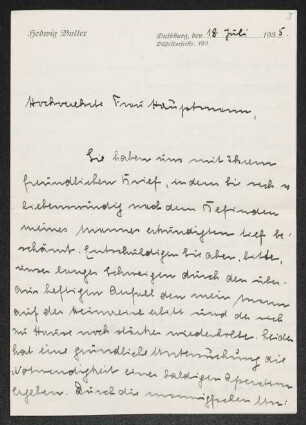 Hedwig Buller
Duisburg, den 18 Juli 1935.
Hochverehrte Frau Hauptmann,
Sie haben uns mit Ihrem
freundlichen Brief, in dem Sie sich so
liebenswürdig nach dem Befinden
meines Mannes erkundigten tief be-
schämt. Entschuldigen Sie aber, bitte,
unser langes Schweigen durch den über-
aus heftigen Anfall den mein Mann
auf der Heimreise erlitt und der sich
zu Hause noch stärker wiederholte. Leider
hat eine gründliche Untersuchung die
Notwendigkeit einer baldigen Operation
ergeben. Durch die